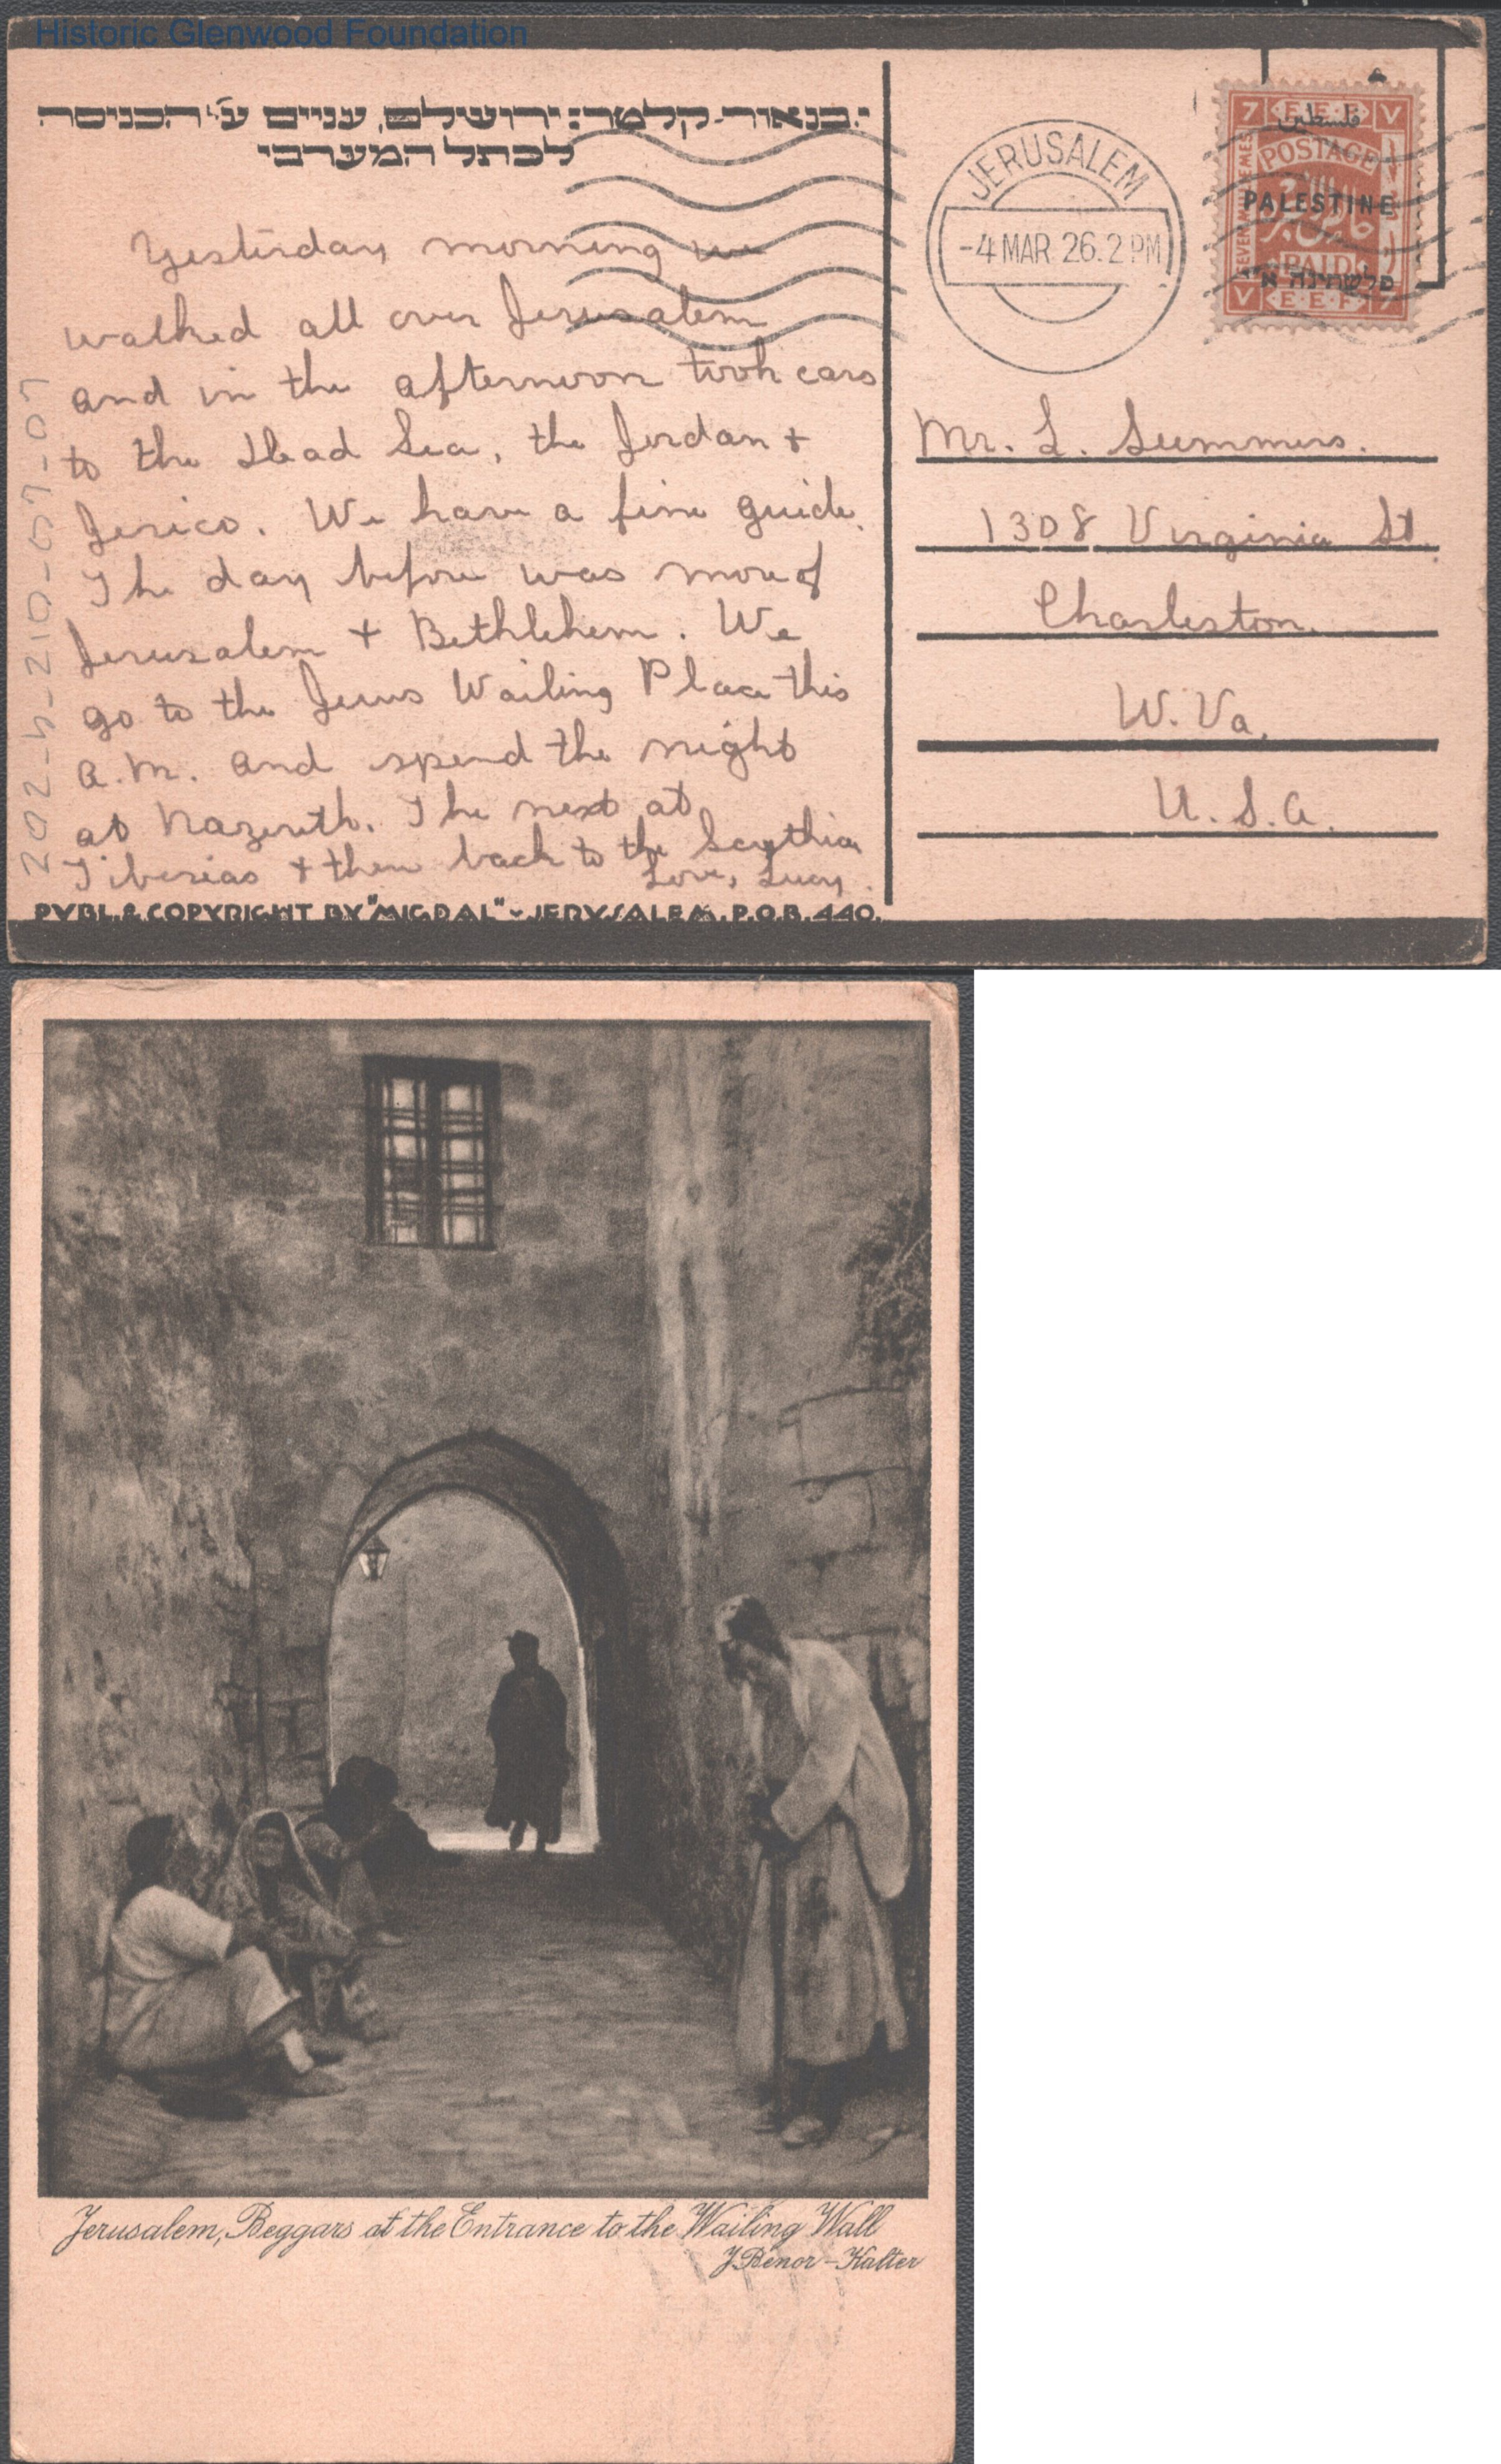 Historic Glenwood Foundation
י. בנאור-קלטר: ירושלם, עניים ע"י הכניסה
לכתל המערבי
Yesterday morning we
walked all over Jerusalem
and in the afternoon took cars
to the Dead Sea, the Jordan +
Jerico. We have a fine guide.
The day before was more of
Jerusalem + Bethlehem. We
go to the Jews Wailing Place this
a.m. and spend the night
at Nazereth. The next at
Tiberias + then back to the Scythia
Love, Lucy.
PVBL. & COPYRIGHT BY "MIGDAL" - JERVSALEM. P.O.B. 440.
202-5-210-07-07
JERUSALEM
-4 MAR 26. 2 PM
7 E.E.F. V
فلسطين
POSTAGE
PALESTINE
PAID
פלשתינה א"י
V E.E.F. 7
Mr. L. Summers.
1308 Virginia St.
Charleston.
W. Va.
U. S. A.
Jerusalem, Beggars at the Entrance to the Wailing Wall
J. Benor-Kalter